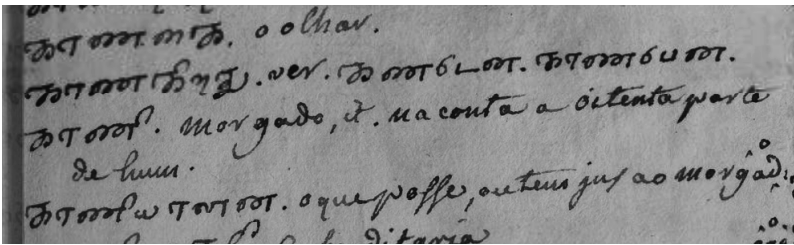 காணகை. o olhar.
காணகிறது. ver. கணடென. காணபென.
காணி. morgado, it. na conta a oitenta parte
de hum.
காணியாளன. o que posse, ou tem jus ao morgad.º
ditaria